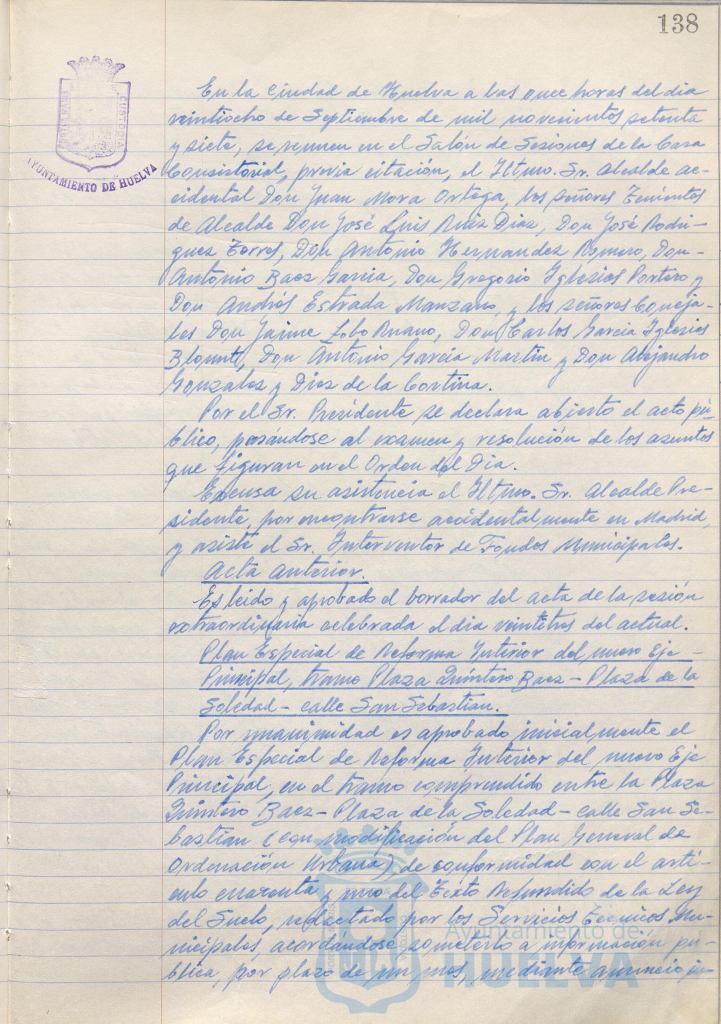 138
PORTUS MARIS ET TERRAE CUSTODIA
AYUNTAMIENTO DE HUELVA
En la ciudad de Huelva a las once horas del dia
veintiocho de Septiembre de mil novecientos setenta
y siete, se reunen en el Salón de Sesiones de la Casa
Consistorial, previa citación, el Iltmo. Sr. Alcalde ac-
cidental Don Juan Mora Ortega, los señores Tenientes
de Alcalde Don José Luis Ruiz Diaz, Don José Rodri-
guez Torres, Don Antonio Hernandez Romero, Don-
Antonio Baez Garcia, Don Gregorio Iglesias Portero y
Don Andrés Estrada Manzano, y los señores Conceja-
les Don Jaime Lobo Ruano, Don Carlos Garcia Iglesias
Don Antonio Garcia Martin y Don Alejandro
Gonzalez y Diez de la Cortina.
Por el Sr. Presidente se declara abierto el acto pú-
blico, pasandose al examen y resolución de los asuntos
que figuran en el Orden del Dia.
Excusa su asistencia el Iltmo. Sr. Alcalde Pre-
sidente, por encontrarse accidentalmente en Madrid,
y asiste el Sr. Interventor de Fondos Municipales.
Acta anterior.
Es leido y aprobado el borrador del acta de la sesión
extraordinaria celebrada el dia veintitres del actual.
Plan Especial de Reforma Interior del nuevo Eje -
Principal, tramo Plaza Quintero Baez - Plaza de la
Soledad - calle San Sebastian.
Por unanimidad es aprobado inicialmente el
Plan Especial de Reforma Interior del nuevo Eje
Principal, en el tramo comprendido entre la Plaza
Quintero Baez - Plaza de la Soledad - calle San Se-
bastian (con modificación del Plan General de
Ordenación Urbana), de conformidad con el arti-
culo cuarenta y uno del Texto Refundido de la Ley
del Suelo, redactado por los Servicios Técnicos Mu-
nicipales, acordándose someterlo a información pú-
blica, por plazo de un mes, mediante anuncio in-
Ayuntamiento de
HUELVA